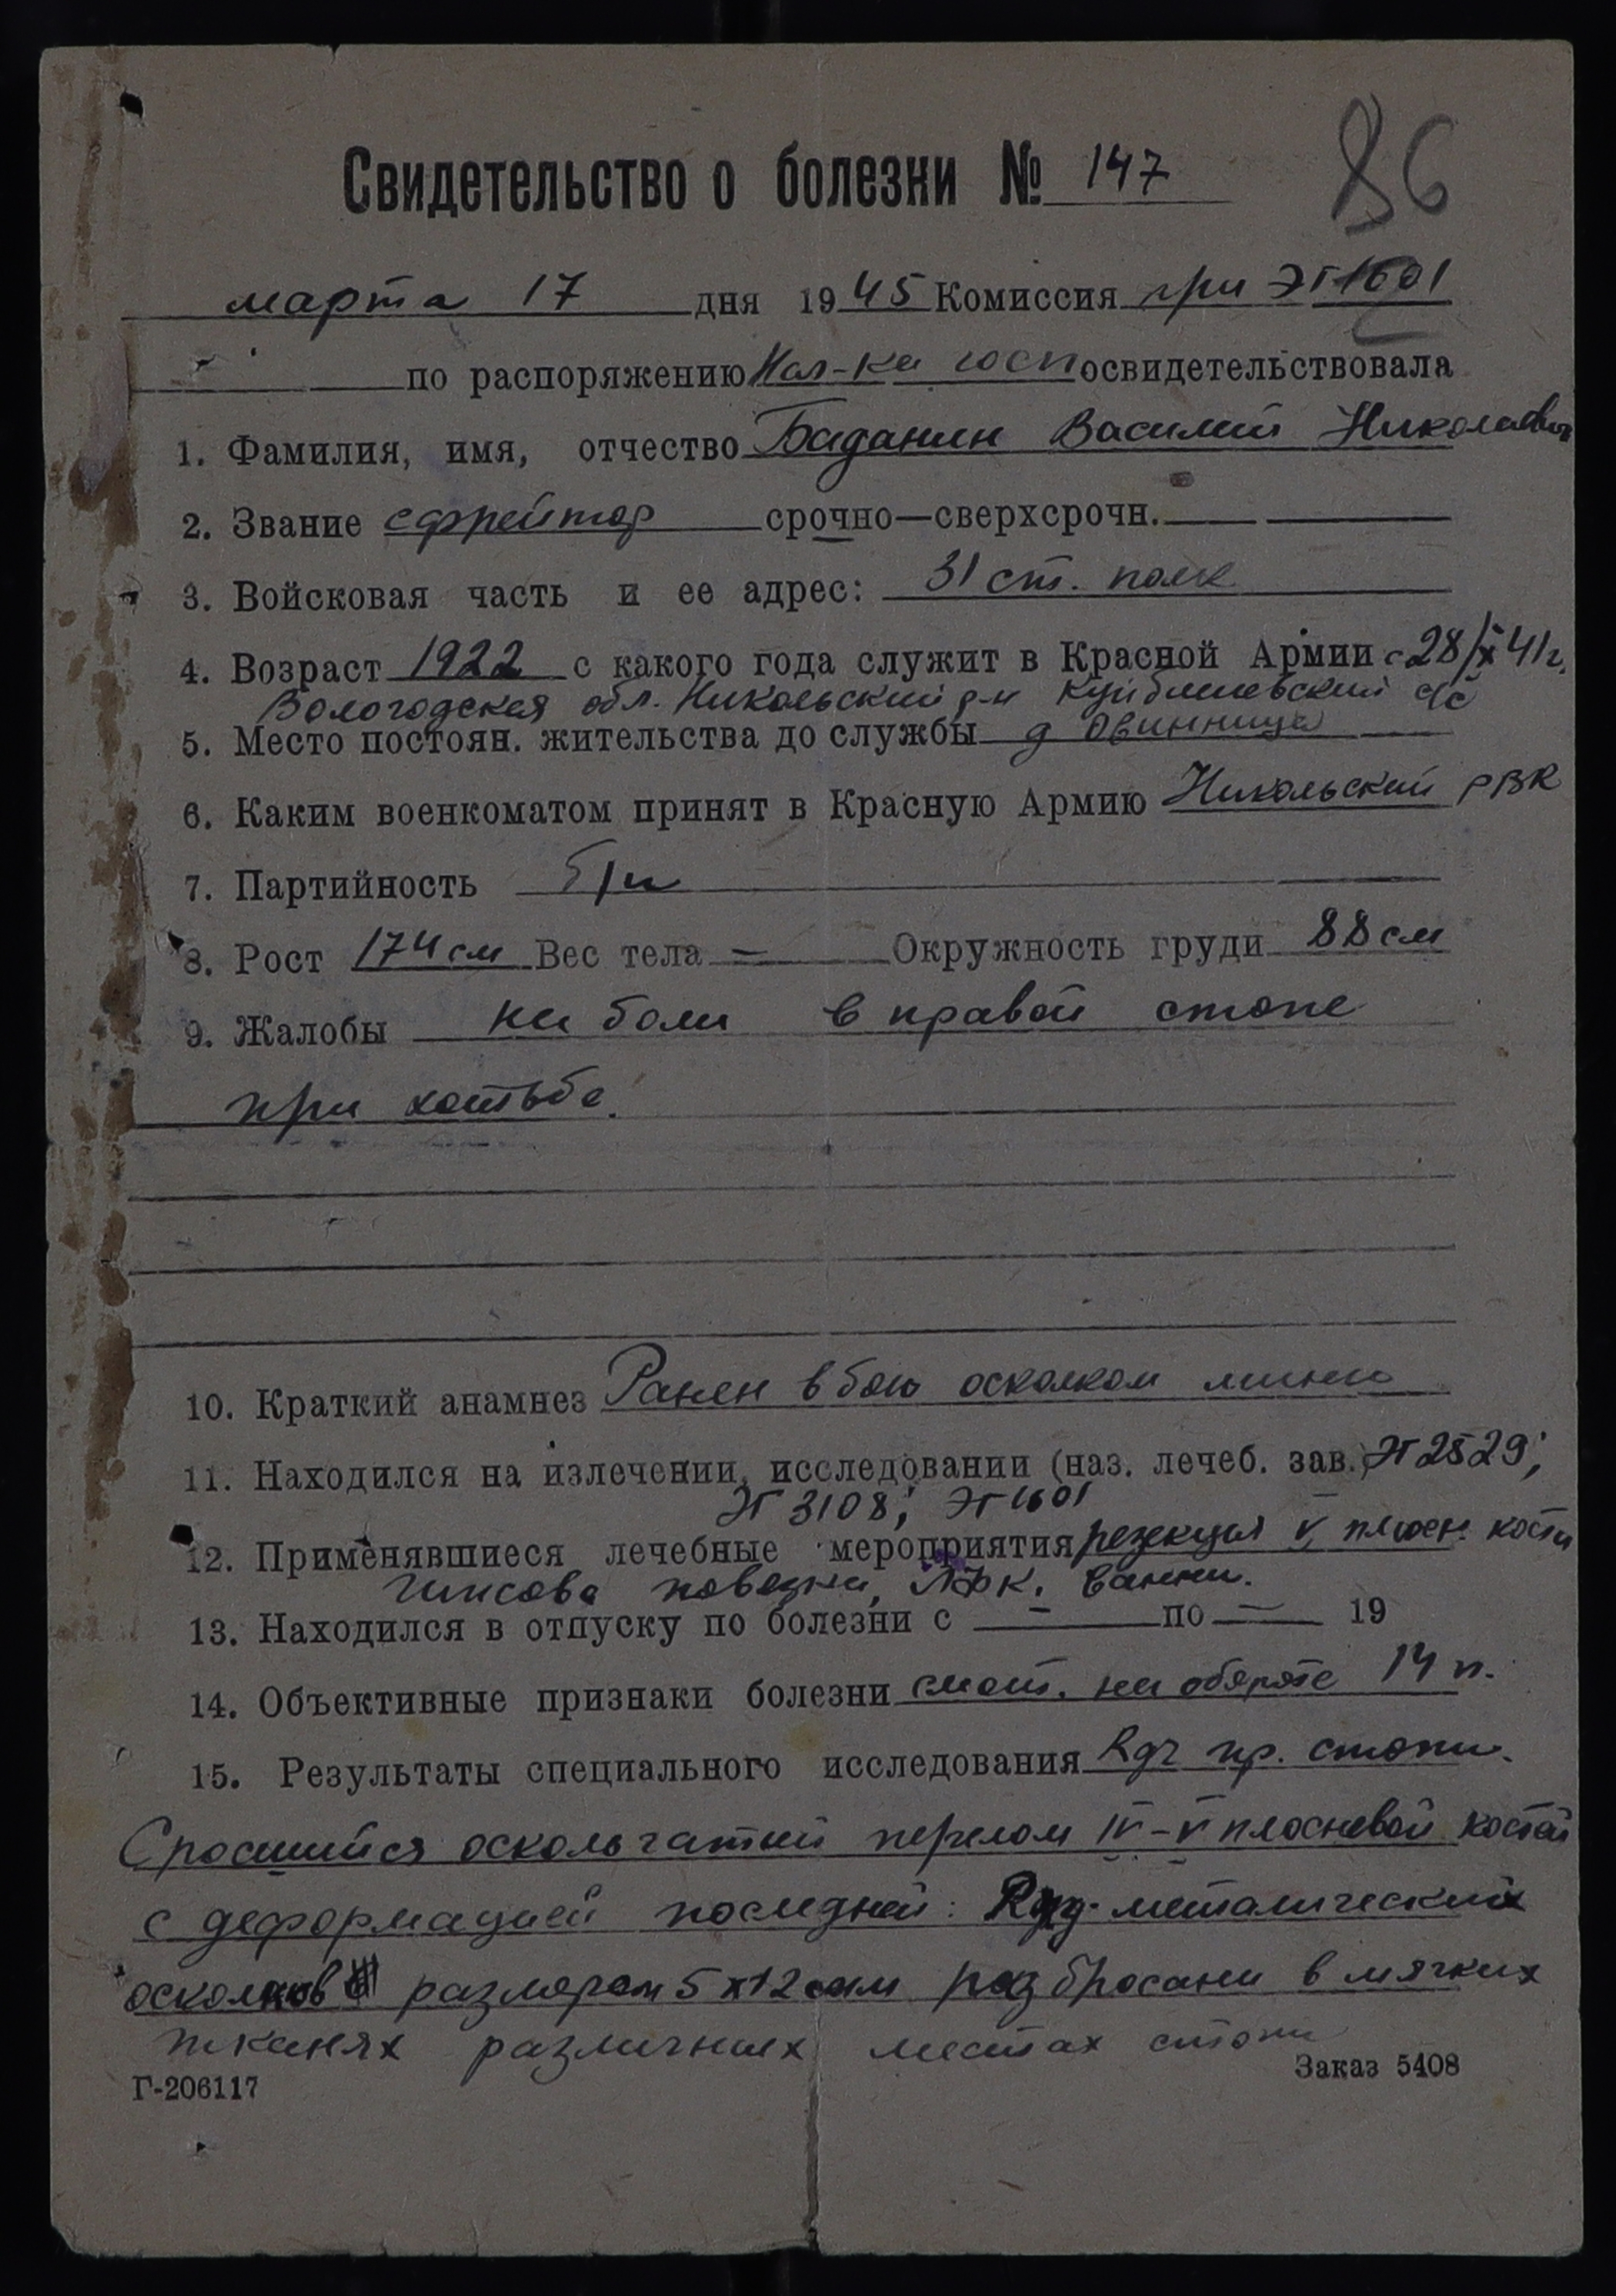 Свидетельство о болезни № 147
86
марта 17 дня 1945 Комиссия при ЭГ1601
по распоряжению Нач-ка госп освидетельствовала
1. Фамилия, имя, отчество Баданин Василий Николаевич
2. Звание ефрейтор срочно—сверхсрочн.
3. Войсковая часть и ее адрес: 31 ст. полк
4. Возраст 1922 с какого года служит в Красной Армии с 28/X 41г.
Вологодская обл. Никольский р-н Куйбышевский с/с
5. Место постоян. жительства до службы д Овинница
6. Каким военкоматом принят в Красную Армию Никольский РВК
7. Партийность б/п
8. Рост 174 см Вес тела — Окружность груди 88 см
9. Жалобы на боли в правой стопе
при хотьбе.
10. Краткий анамнез Ранен в бою осколком мины
11. Находился на излечении, исследовании (наз. лечеб. зав.) ЭГ 2529;
ЭГ 3108; ЭГ 1601
12. Применявшиеся лечебные мероприятия резекция V плюсн. кости
гипсова повязка, ЛФК. ванны.
13. Находился в отпуску по болезни с — по — 19
14. Объективные признаки болезни смот. на обороте 14 п.
15. Результаты специального исследования Rgr пр. стопы.
Сросшийся оскольчатый перелом IV-V плосневой костей
с деформацией последней: металических
осколков размером 5х12 мм разбросаны в мягких
тканях различных местах стопы
Г-206117
Заказ 5408